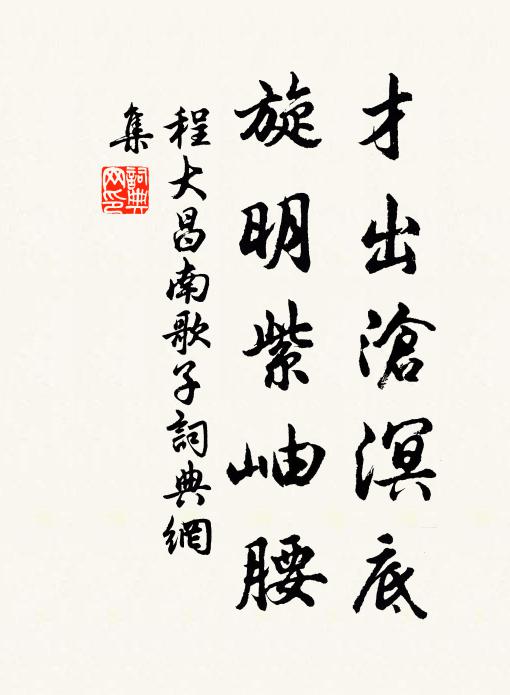 才出滄溟底
旋明紫岫腰
程大昌南歌子詞典網
集
詞典網印